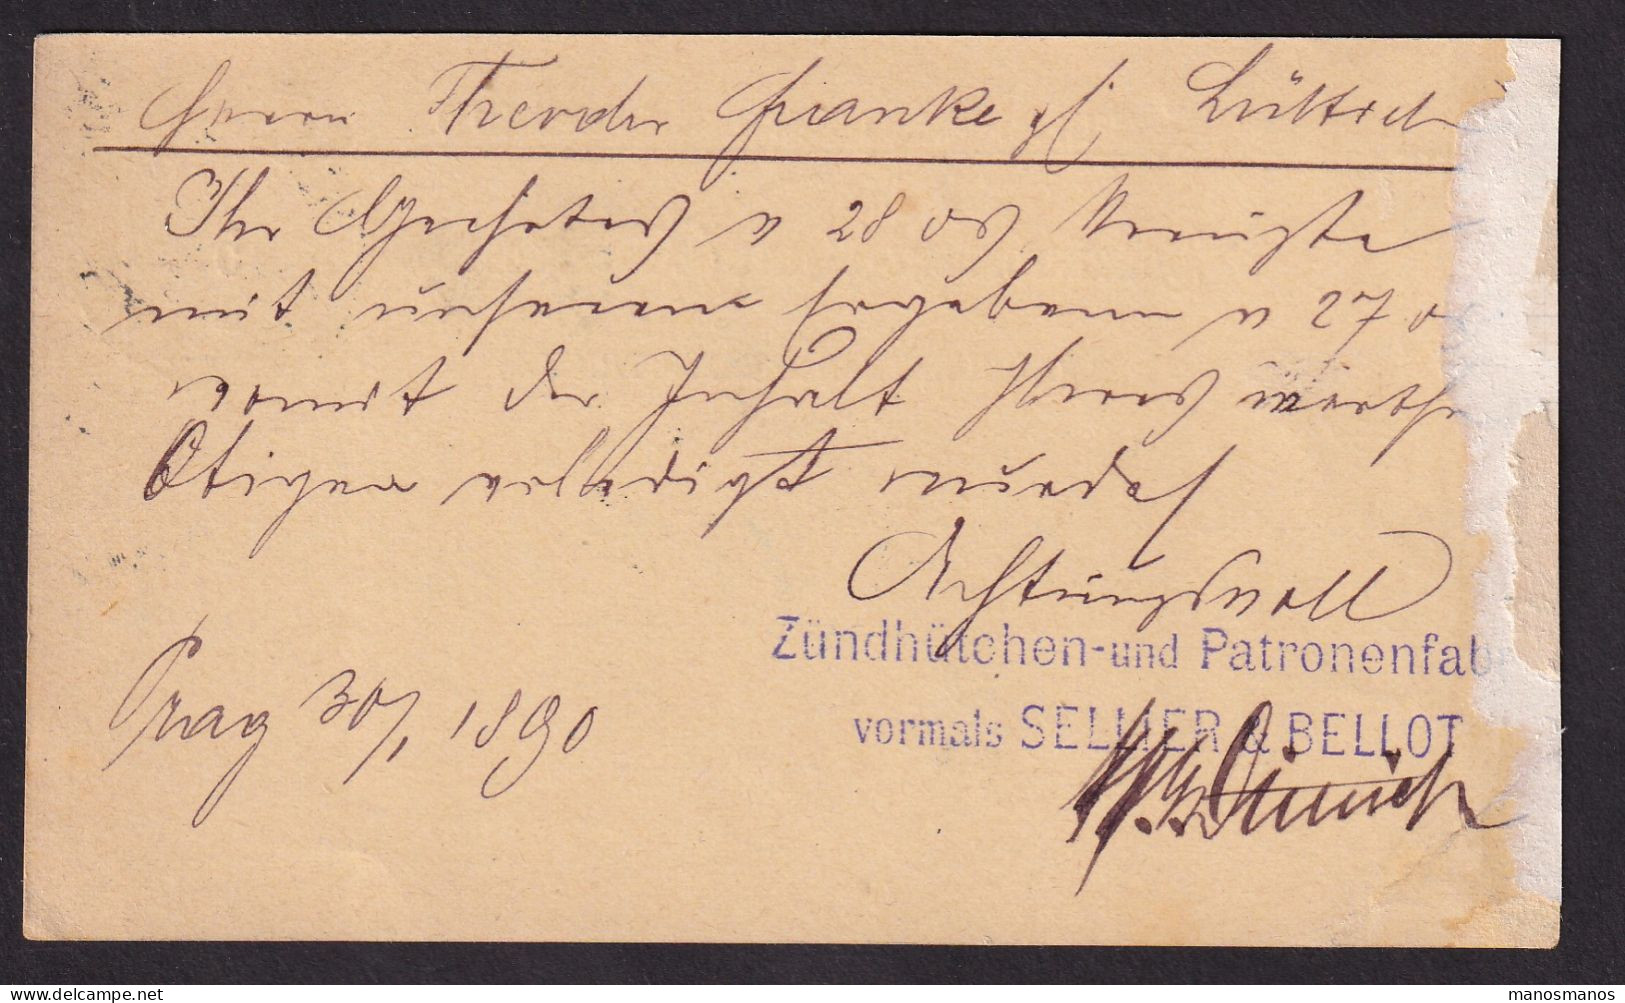 Herrn Theodor Francke gf, Lüttich
Ihr Geehrtes v 28 ds kreuzte
mit unserem Ergebenen v 27 d
womit der Inhalt Ihres werthen
Obigen erledigt wurde.
Achtungsvoll
Zündhütchen- und Patronenfab
vormals SELLIER & BELLOT
Prag 30/1 1890
manosmanos